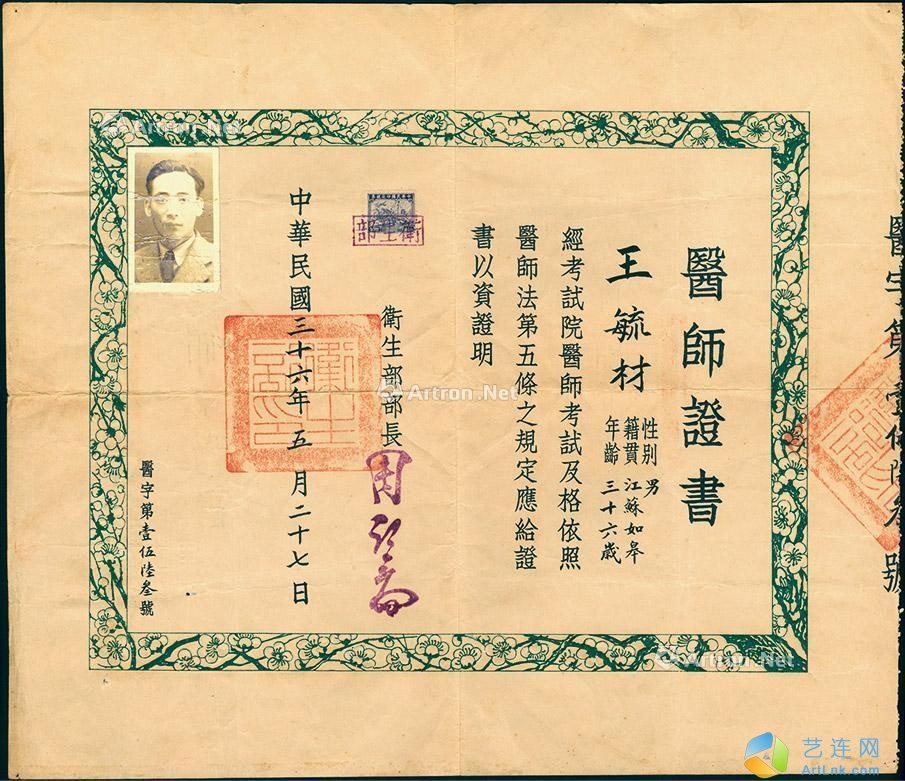 醫師證書
王毓材
性別 男
籍貫 江蘇如皋
年齡 三十六歲
經考試院醫師考試及格依照
醫師法第五條之規定應給證
書以資證明
衛生部部長
周詒春
衛生部
中華民國三十六年五月二十七日
醫字第壹伍陸叁號
醫字第壹伍陸叁號
Artron.Net
Artron.Net
Artron.Net
艺连网
ArtLnk.com